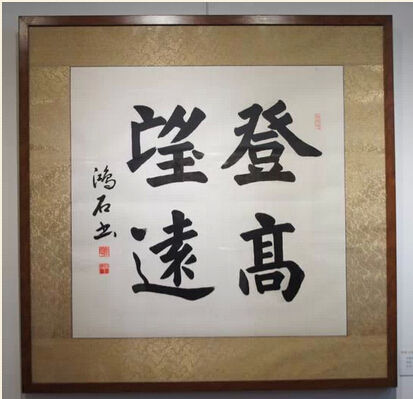 登高
望遠
鴻石书